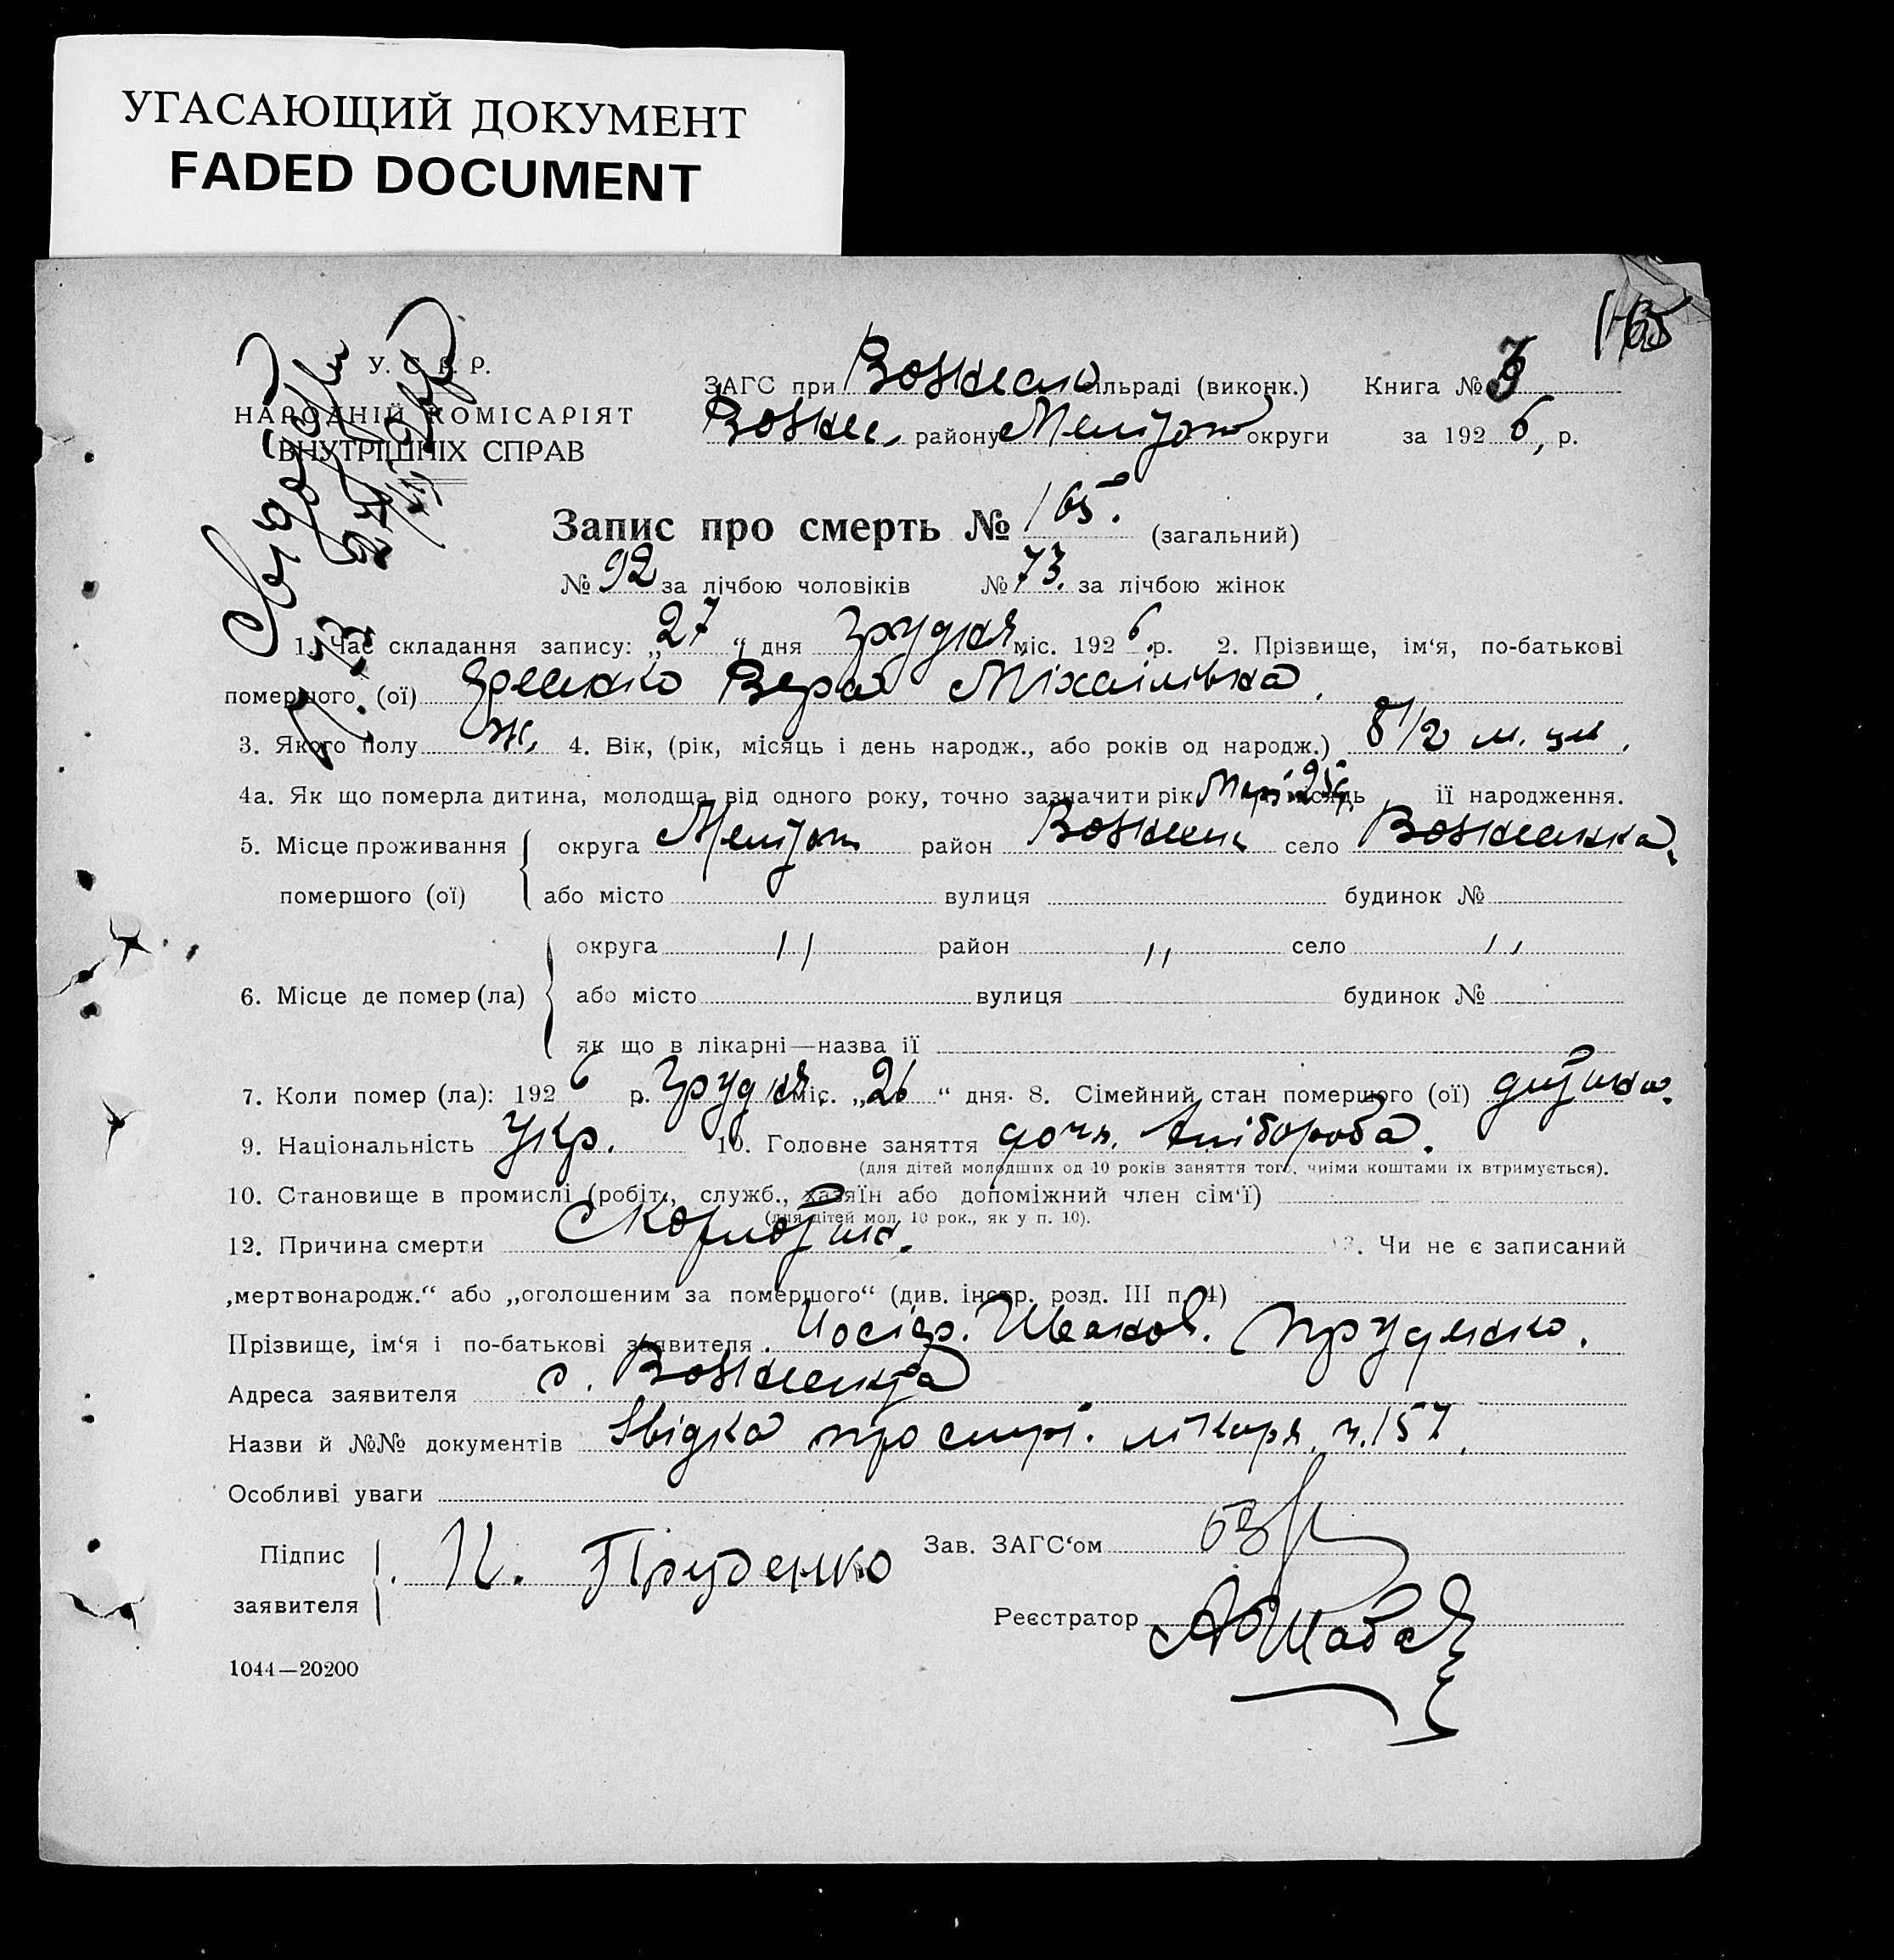 УГАСАЮЩИЙ ДОКУМЕНТ
FADED DOCUMENT
165
У. С. Р. Р.
НАРОДНІЙ КОМІСАРІЯТ
ВНУТРІШНІХ СПРАВ
ЗАГС при сільраді (виконк.) Книга №
району округи за 192 6, р.
Запис про смерть № 165. (загальний)
№ 92 за лічбою чоловіків № 73. за лічбою жінок
1. Час складання запису: „ 27 “ дня грудня міс. 192 6 р. 2. Прізвище, ім‘я, по-батькові
помершого (ої) Вера Міхаілівна.
3. Якого полу ж. 4. Вік, (рік, місяць і день народж., або років од народж.) 8 1/2 м.
4а. Як що померла дитина, молодща від одного року, точно зазначити рік місяць її народження.
5. Місце проживання округа Меліт район село
помершого (ої) або місто вулиця будинок №
округа 〃 район 〃 село 〃
6. Місце де помер (ла) або місто вулиця будинок №
як що в лікарні—назва її
7. Коли помер (ла): 192 6 р. грудня міс. „ 26 “ дня. 8. Сімейний стан помершого (ої) дитина.
9. Національність Укр. 10. Головне заняття доч. хлібороба.
(для дітей молодших од 10 років заняття того, чиїми коштами їх втримується).
10. Становище в промислі (робітн., служб., хазяїн або допоміжний член сім‘ї)
(для дітей мол. 10 рок., як у п. 10).
12. Причина смерти Скорлатина. 13. Чи не є записаний
„мертвонародж.“ або „оголошеним за помершого“ (див. інстр. розд. III п. 4)
Прізвище, ім‘я і по-батькові заявителя Пруденко.
Адреса заявителя с.
Назви й №№ документів Звідка про смерт. лікаря ч. 157.
Особливі уваги
Підпис
заявителя
И. Пруденко
Зав. ЗАГС‘ом
Реєстратор
1044—20200